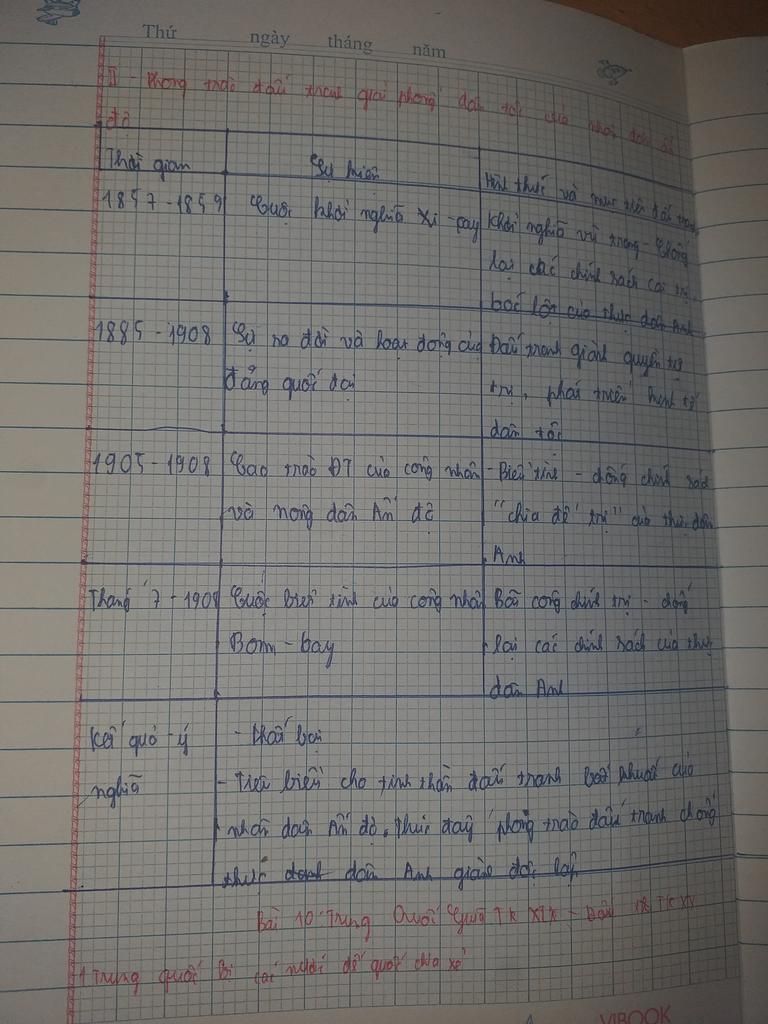 Thứ ngày tháng năm
II - Phong trào đấu tranh giải phóng dân tộc của nhân dân ấn
độ
Thời gian Sự kiện Hình thức và mục tiêu đấu tranh
1857-1859 Cuộc khởi nghĩa Xi-pay Khởi nghĩa vũ trang - chống
lại các chính sách cai trị
bóc lột của thực dân Anh
1885-1908 Sự ra đời và hoạt động của Đấu tranh giành quyền tự
đảng quốc đại trị, phát triển kinh tế
dân tộc
1905-1908 Cao trào ĐT của công nhân - Biểu tình - chống chính sách
và nông dân Ấn độ "chia để trị" của thực dân
Anh
Tháng 7-1908 Cuộc biểu tình của công nhân Bãi công chính trị - chống
Bom-bay lại các chính sách của thực
dân Anh
Kết quả-ý - thất bại
nghĩa - Tiêu biểu cho tinh thần đấu tranh bất khuất của
nhân dân Ấn độ, thúc đẩy phong trào đấu tranh chống
thực dân Anh giành độc lập
Bài 10: Trung Quốc Giữa TK XIX - Đầu TK XX
1 Trung quốc Bị các nước đế quốc chia xẻ
VIBOOK